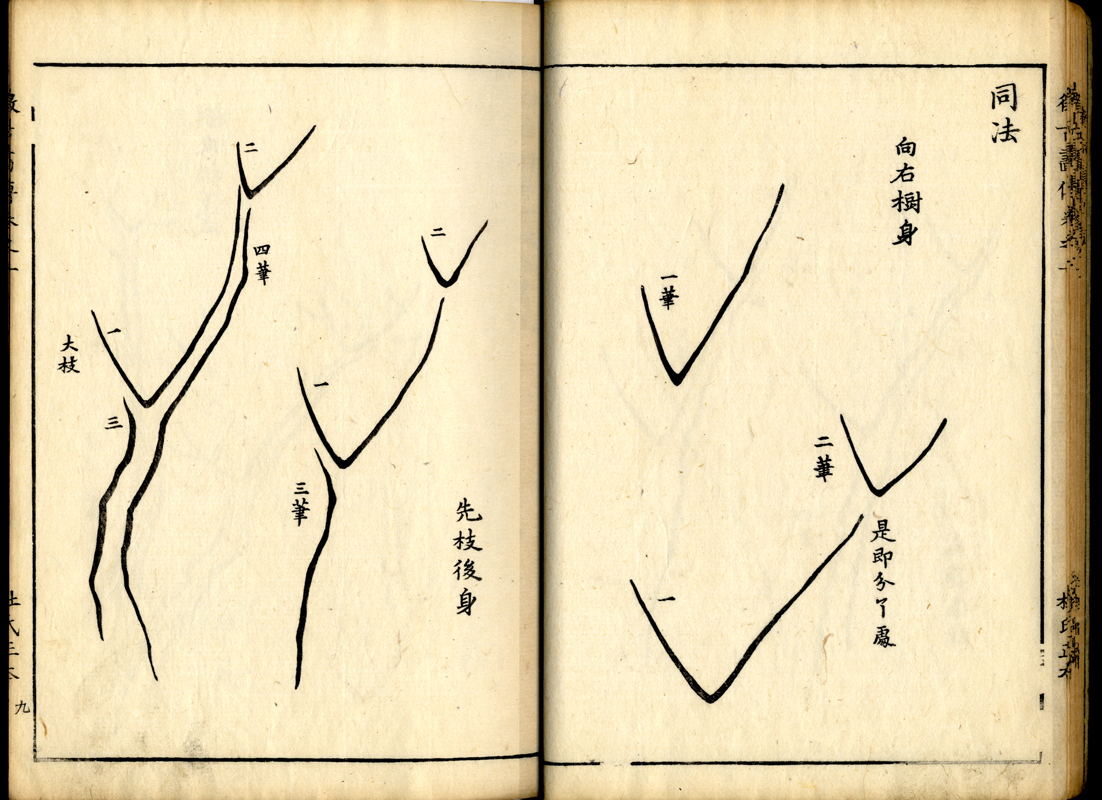 同法
向右樹身
一筆
二筆
是即分了處
一
二
先枝後身
一
三筆
二
四筆
一
大枝
三
九